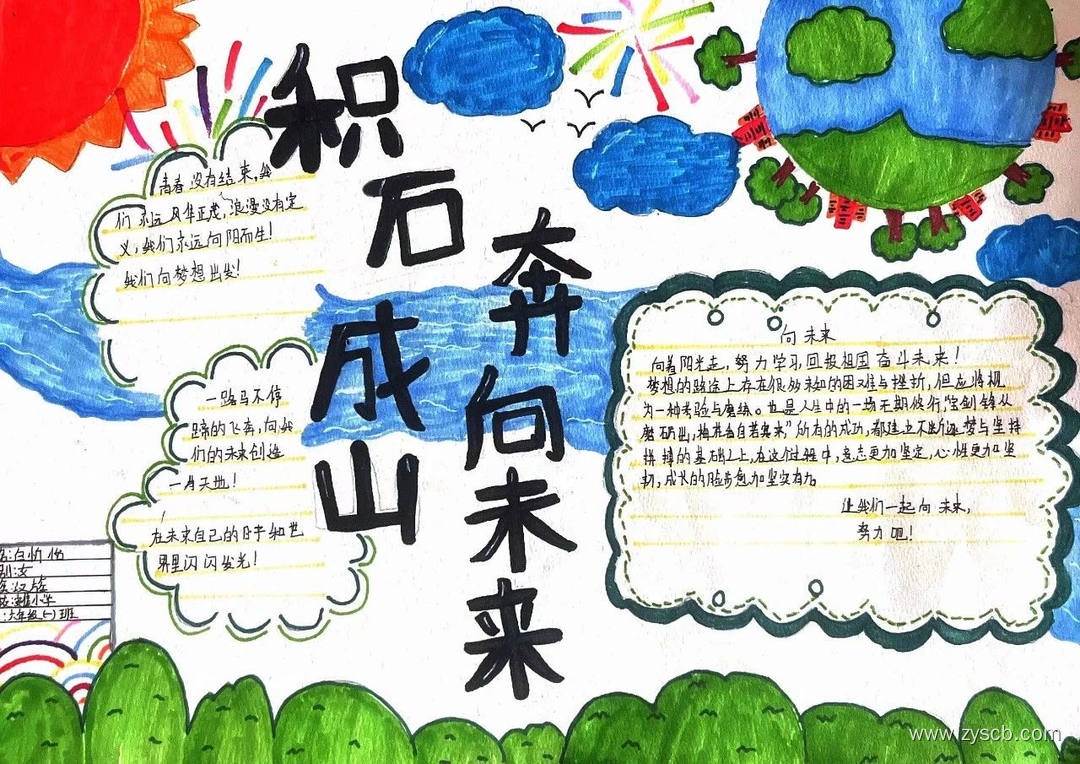 积石成山
奔向未来
青春没有结束,我
们永远风华正茂,浪漫没有定
义,我们永远向阳而生!
我们向梦想出发!
一路马不停
蹄的飞奔,向我
们的未来创造
一片天地!
在未来自己的日子和世
界里闪闪发光!
向未来
向着阳光走,努力学习回报祖国奋斗未来!
梦想的路途上存在很多未知的困难与挫折,但应将视
为一种考验与磨练。也是人生中的一场无期修行,"宝剑锋从
磨砺出,梅花香自苦寒来"所有的成功,都建立不断追梦与坚持
拼搏的基础之上,在这个过程中,意志更加坚定,心性更加坚
韧,成长的脸步愈加坚实有力。
让我们一起向未来,
努力吧!
名:白
别:女
族:汉族
小学
:六年级(一)班
www.zyscb.com